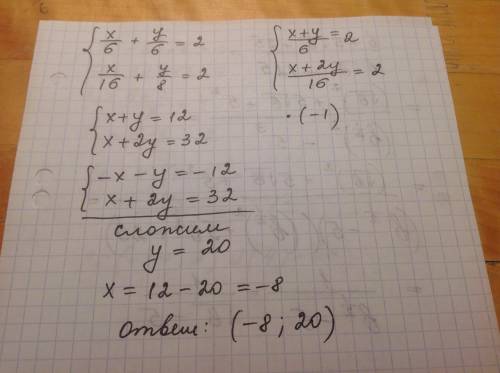 { x/6 + y/6 = 2
x/16 + y/8 = 2
{ (x+y)/6 = 2
(x+2y)/16 = 2
{ x+y = 12
x+2y = 32
· (-1)
{ -x - y = -12
x + 2y = 32
сложим
y = 20
x = 12 - 20 = -8
Ответ: (-8; 20)